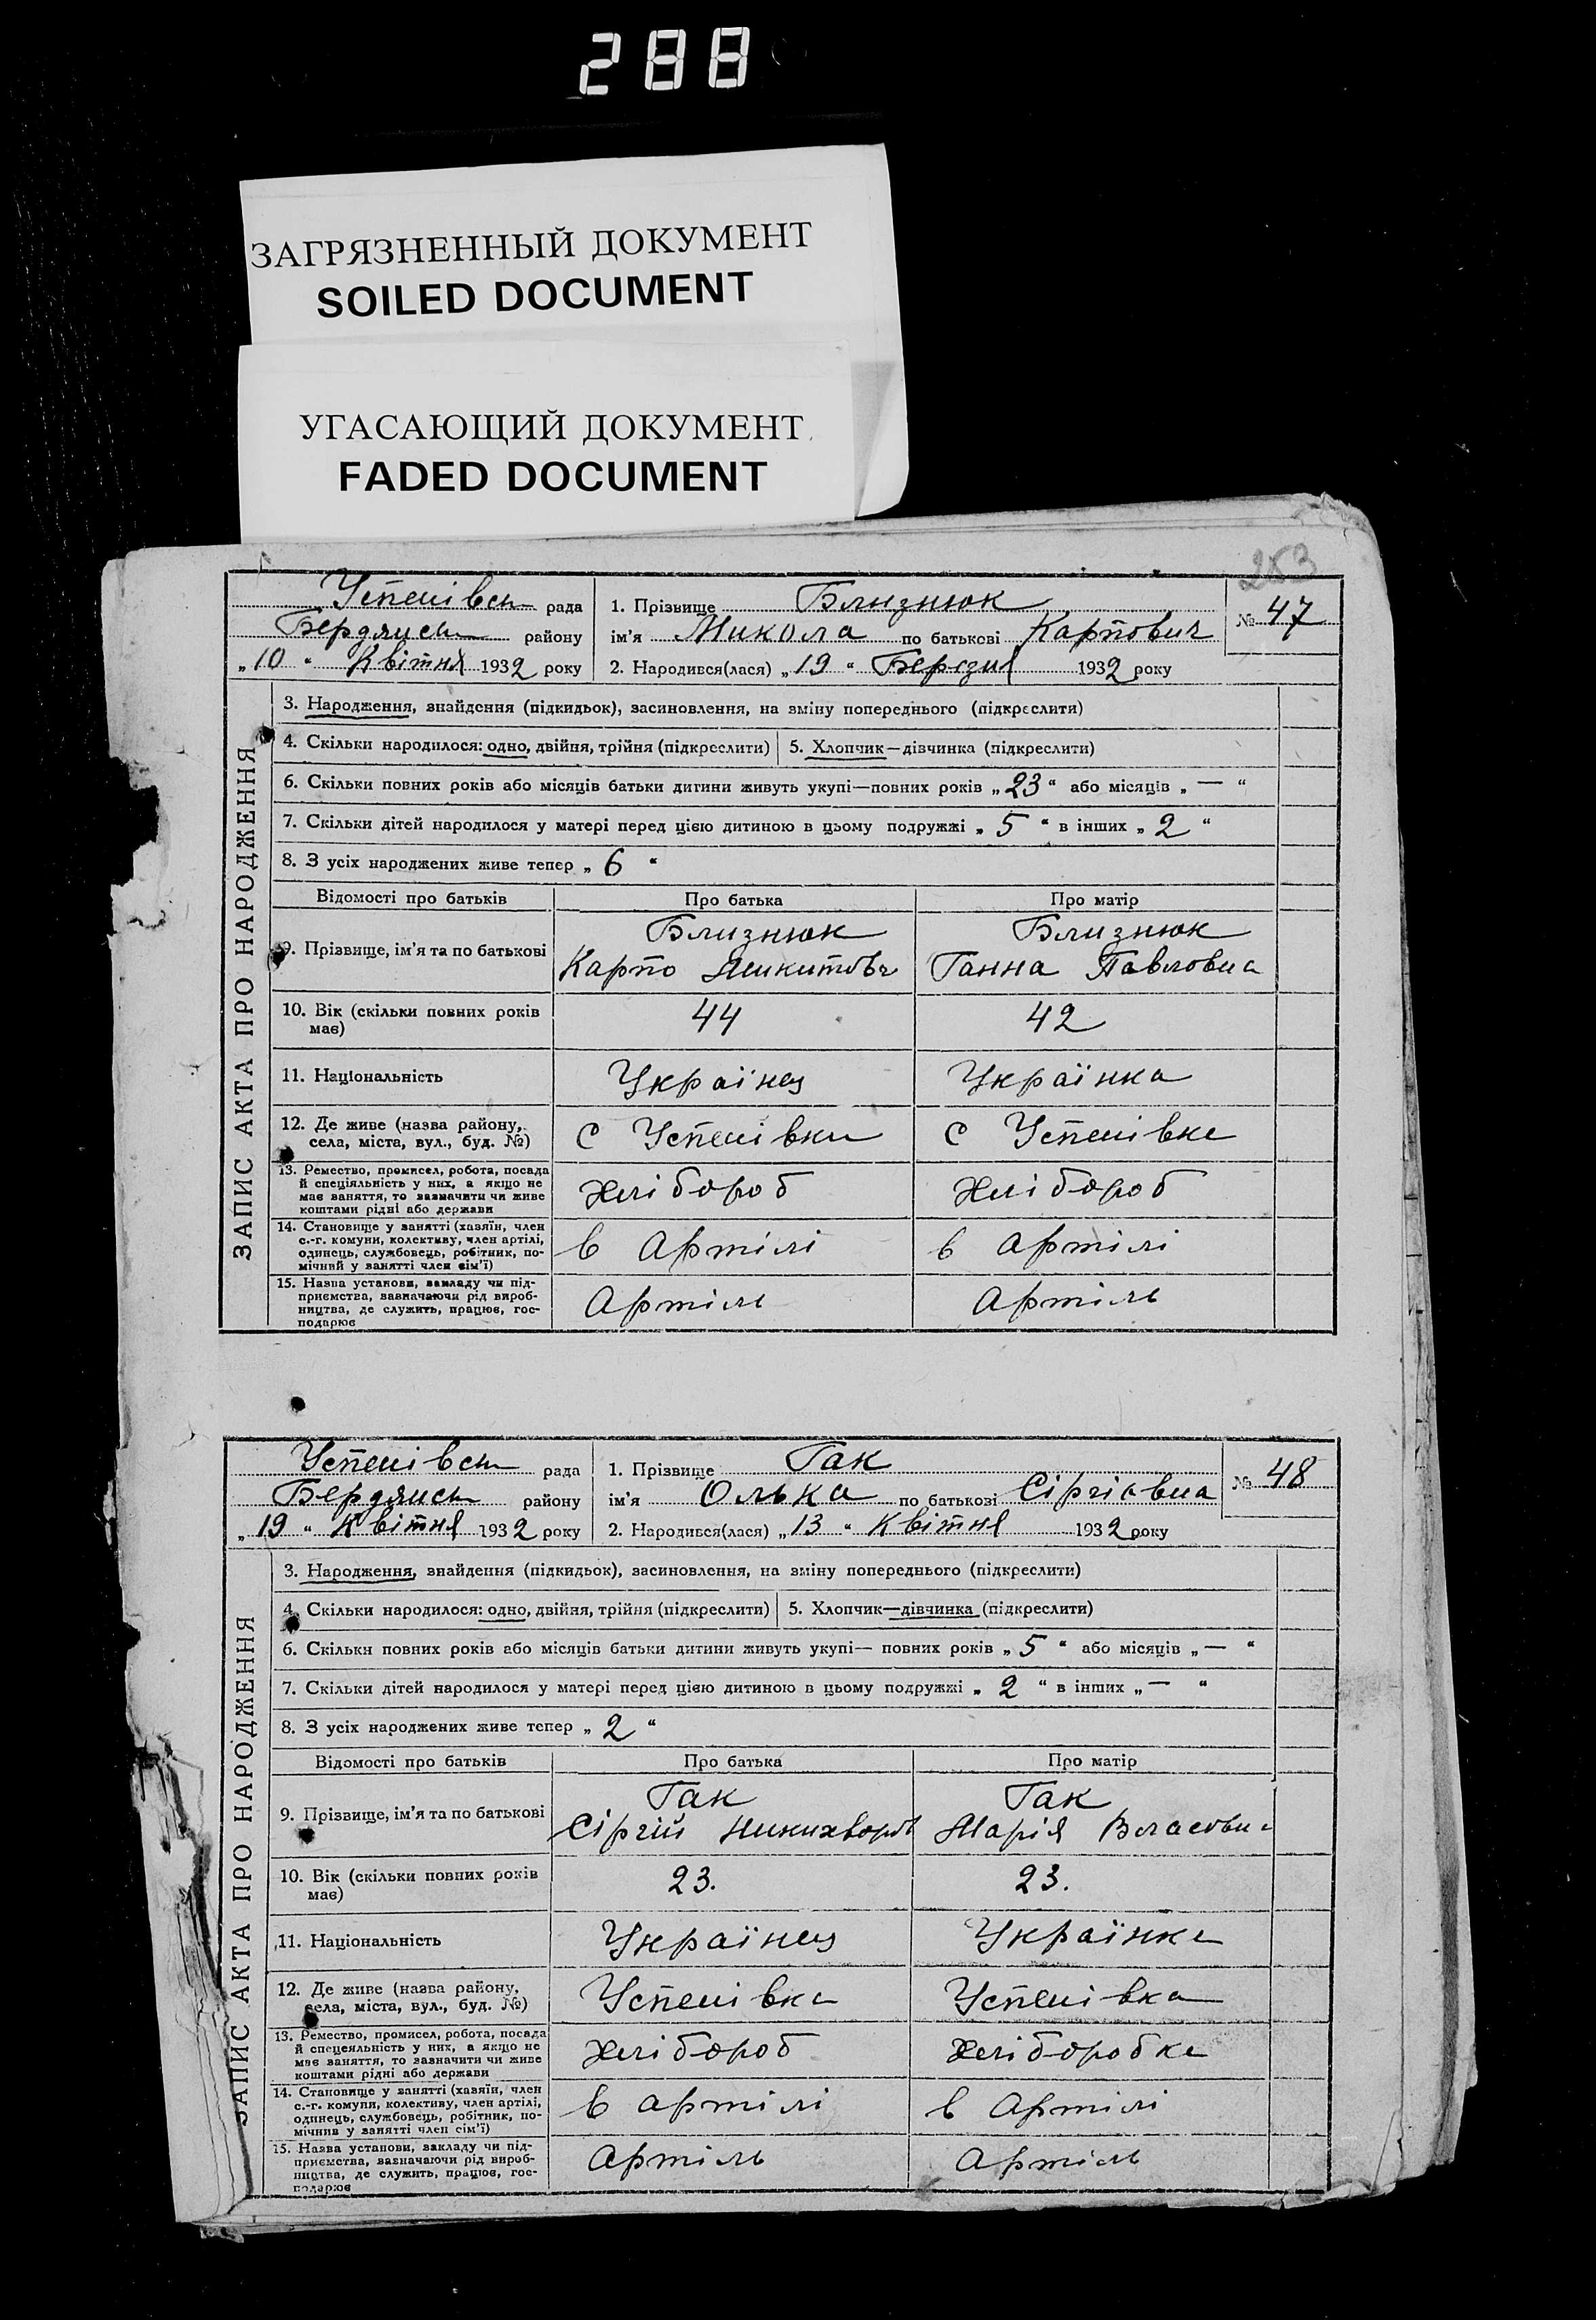 288
ЗАГРЯЗНЕННЫЙ ДОКУМЕНТ
SOILED DOCUMENT
УГАСАЮЩИЙ ДОКУМЕНТ
FADED DOCUMENT
253
Успенівськ рада
Бердянськ району
„10“ Квітня 1932 року
1. Прізвище Близнюк
ім'я Микола по батькові Карпович
2. Народився(лася) „19“ Березня 1932 року
№ 47
ЗАПИС АКТА ПРО НАРОДЖЕННЯ
3. Народження, знайдення (підкидьок), засиновлення, на зміну попереднього (підкреслити)
4. Скільки народилося: одно, двійня, трійня (підкреслити) 5. Хлопчик—дівчинка (підкреслити)
6. Скільки повних років або місяців батьки дитини живуть укупі—повних років „23“ або місяців „—“
7. Скільки дітей народилося у матері перед цією дитиною в цьому подружжі „5“ в інших „2“
8. З усіх народжених живе тепер „6“
Відомості про батьків Про батька Про матір
9. Прізвище, ім'я та по батькові
Близнюк
Карпо Микитовч
Близнюк
Ганна Павловна
10. Вік (скільки повних років
має)
44 42
11. Національність Українец Українка
12. Де живе (назва району,
села, міста, вул., буд. №)
с Успенівка с Успенівка
13. Ремество, промисел, робота, посада
й спеціяльність у них, а якщо не
має заняття, то зазначити чи живе
коштами рідні або держави
Хлібороб Хлібороб
14. Становище у занятті (хазяїн, член
с.-г. комуни, колективу, член артілі,
одинець, службовець, робітник, по-
мічний у занятті член сім'ї)
в Артілі в Артілі
15. Назва установи, закладу чи під-
приємства, зазначаючи рід вироб-
ництва, де служить, працює, гос-
подарює
Артіль Артіль
Успенівськ рада
Бердянськ району
„19“ Квітня 1932 року
1. Прізвище Гак
ім'я Олька по батькові Сіргіавна
2. Народився(лася) „13“ Квітня 1932 року
№ 48
ЗАПИС АКТА ПРО НАРОДЖЕННЯ
3. Народження, знайдення (підкидьок), засиновлення, на зміну попереднього (підкреслити)
4. Скільки народилося: одно, двійня, трійня (підкреслити) 5. Хлопчик—дівчинка (підкреслити)
6. Скільки повних років або місяців батьки дитини живуть укупі— повних років „5“ або місяців „—“
7. Скільки дітей народилося у матері перед цією дитиною в цьому подружжі „2“ в інших „—“
8. З усіх народжених живе тепер „2“
Відомості про батьків Про батька Про матір
9. Прізвище, ім'я та по батькові
Гак
Сіргій
Гак
Марія Власовна
10. Вік (скільки повних років
має)
23. 23.
11. Національність Українец Українка
12. Де живе (назва району,
села, міста, вул., буд. №)
Успенівка Успенівка
13. Ремество, промисел, робота, посада
й спецеяльність у них, а якщо не
має заняття, то зазначити чи живе
коштами рідні або держави
Хлібороб Хлібаробка
14. Становище у занятті (хазяїн, член
с.-г. комуни, колективу, член артілі,
одинець, службовець, робітник, по-
мічнив у занятті член сім'ї)
в артілі в Артілі
15. Назва установи, закладу чи під-
приємства, зазначаючи рід вироб-
ництва, де служить, працює, гос-
подарює
Артіль Артіль